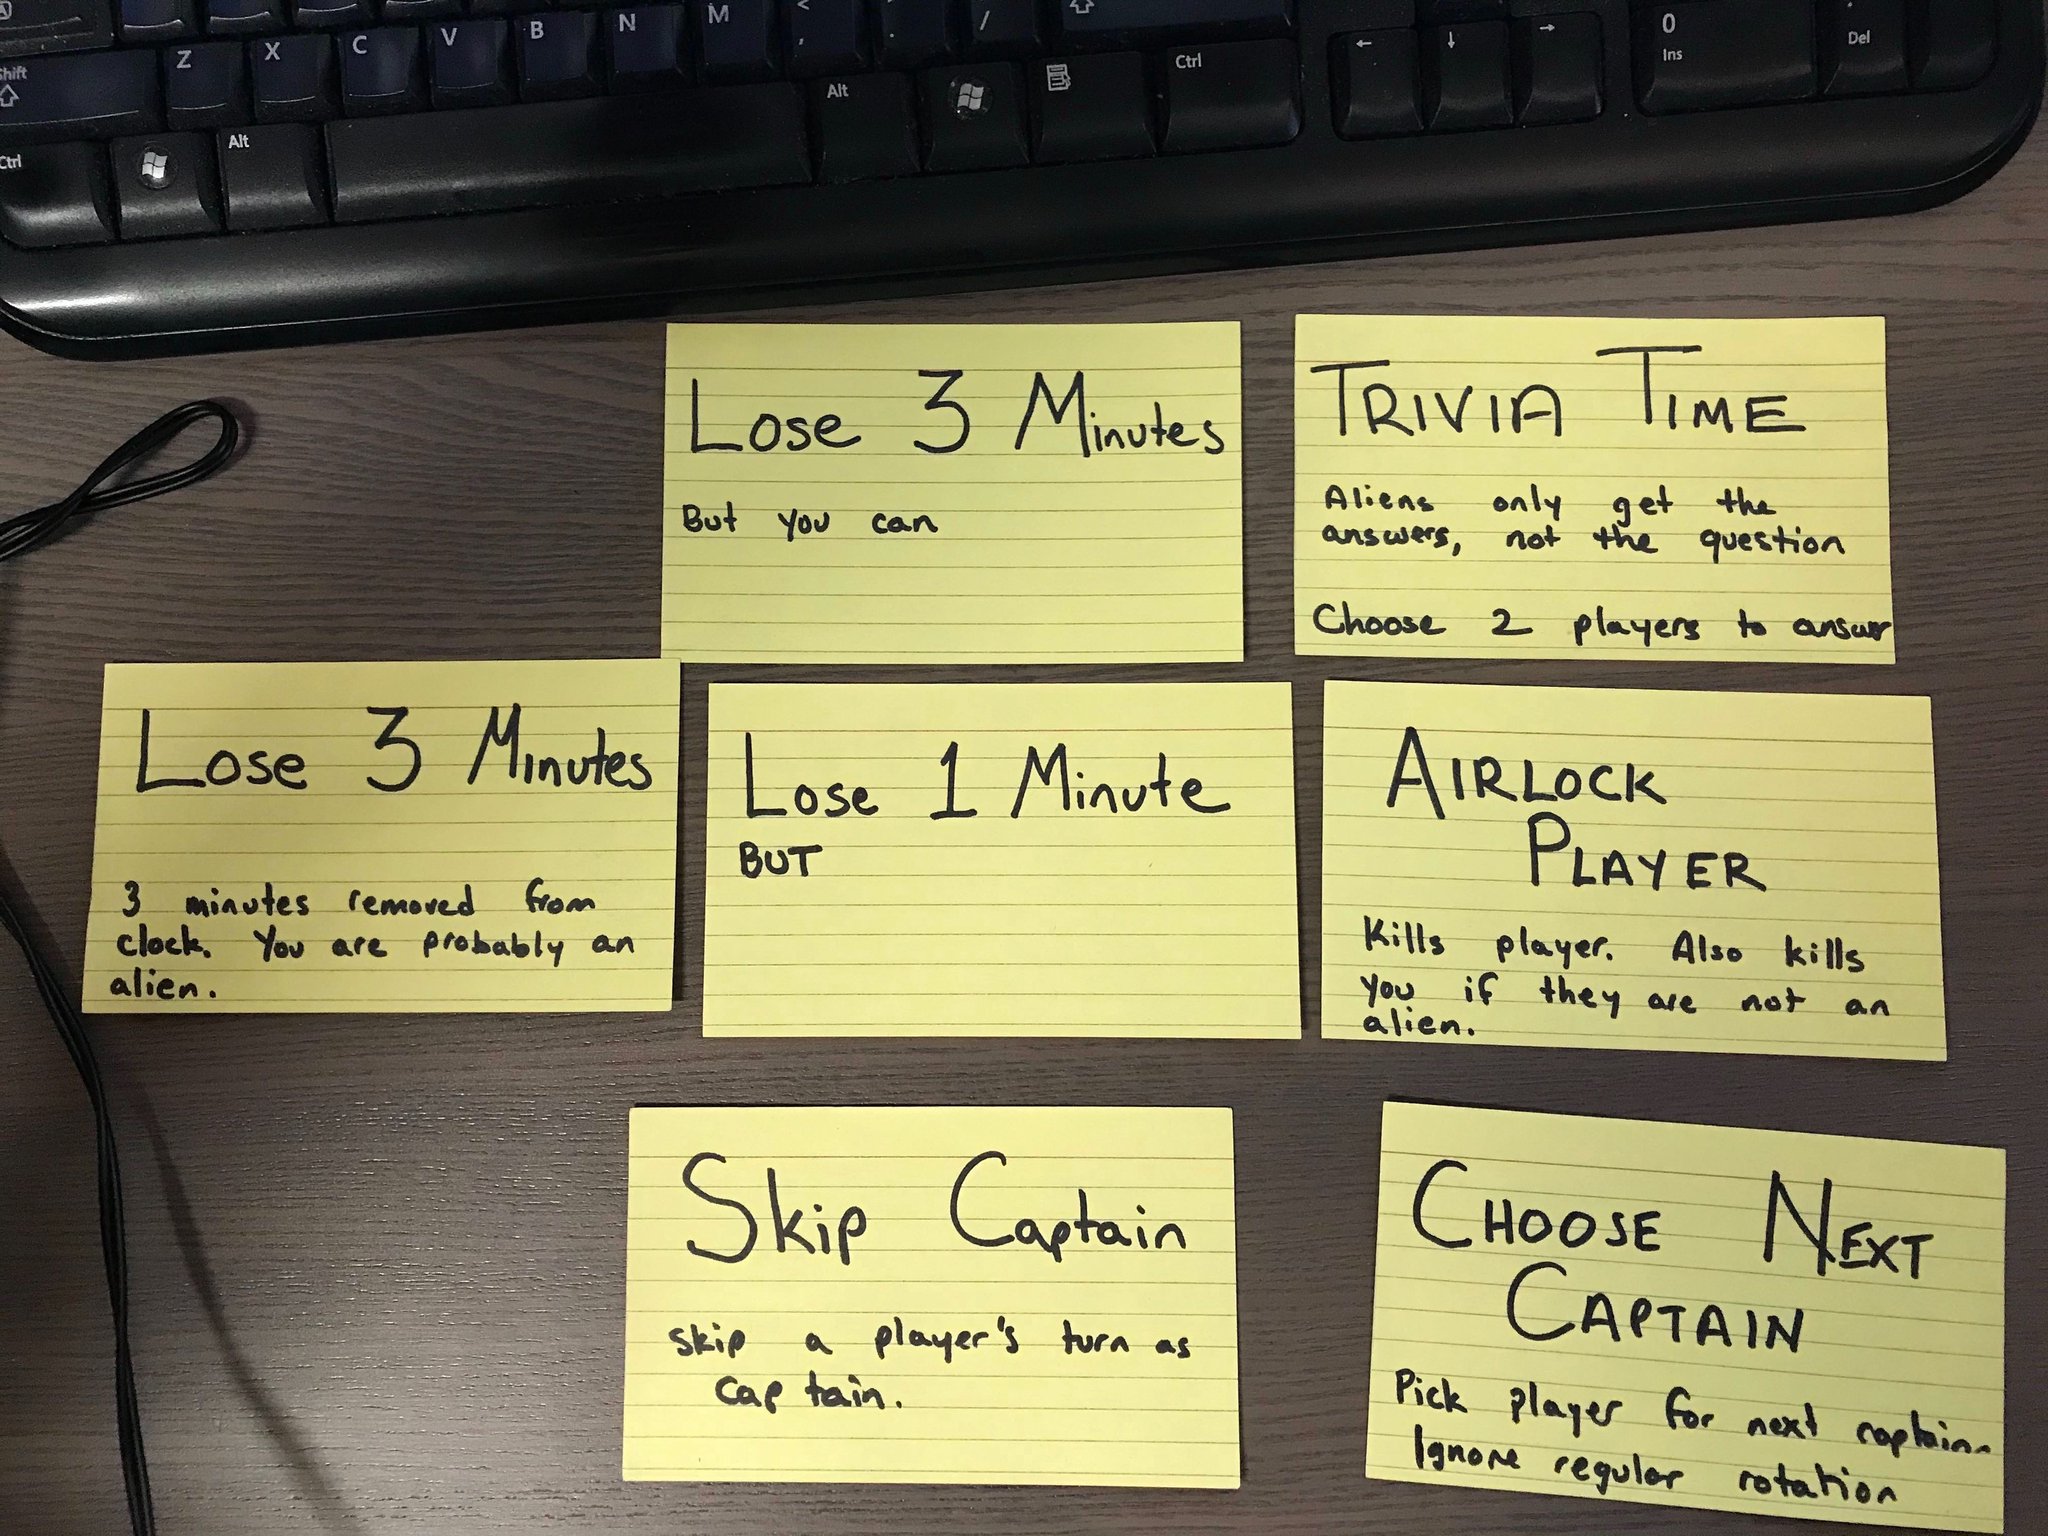 Z X C V B N M < , . /
Shift
Ctrl Alt Alt Ctrl ← ↓ → 0 Ins . Del
Lose 3 Minutes
But you can
TRIVIA TIME
Aliens only get the
answers, not the question
Choose 2 players to answer
Lose 3 Minutes
3 minutes removed from
clock. You are probably an
alien.
Lose 1 Minute
BUT
AIRLOCK
PLAYER
Kills player. Also kills
you if they are not an
alien.
Skip Captain
skip a player's turn as
captain.
CHOOSE NEXT
CAPTAIN
Pick player for next captain.
Ignore regular rotation